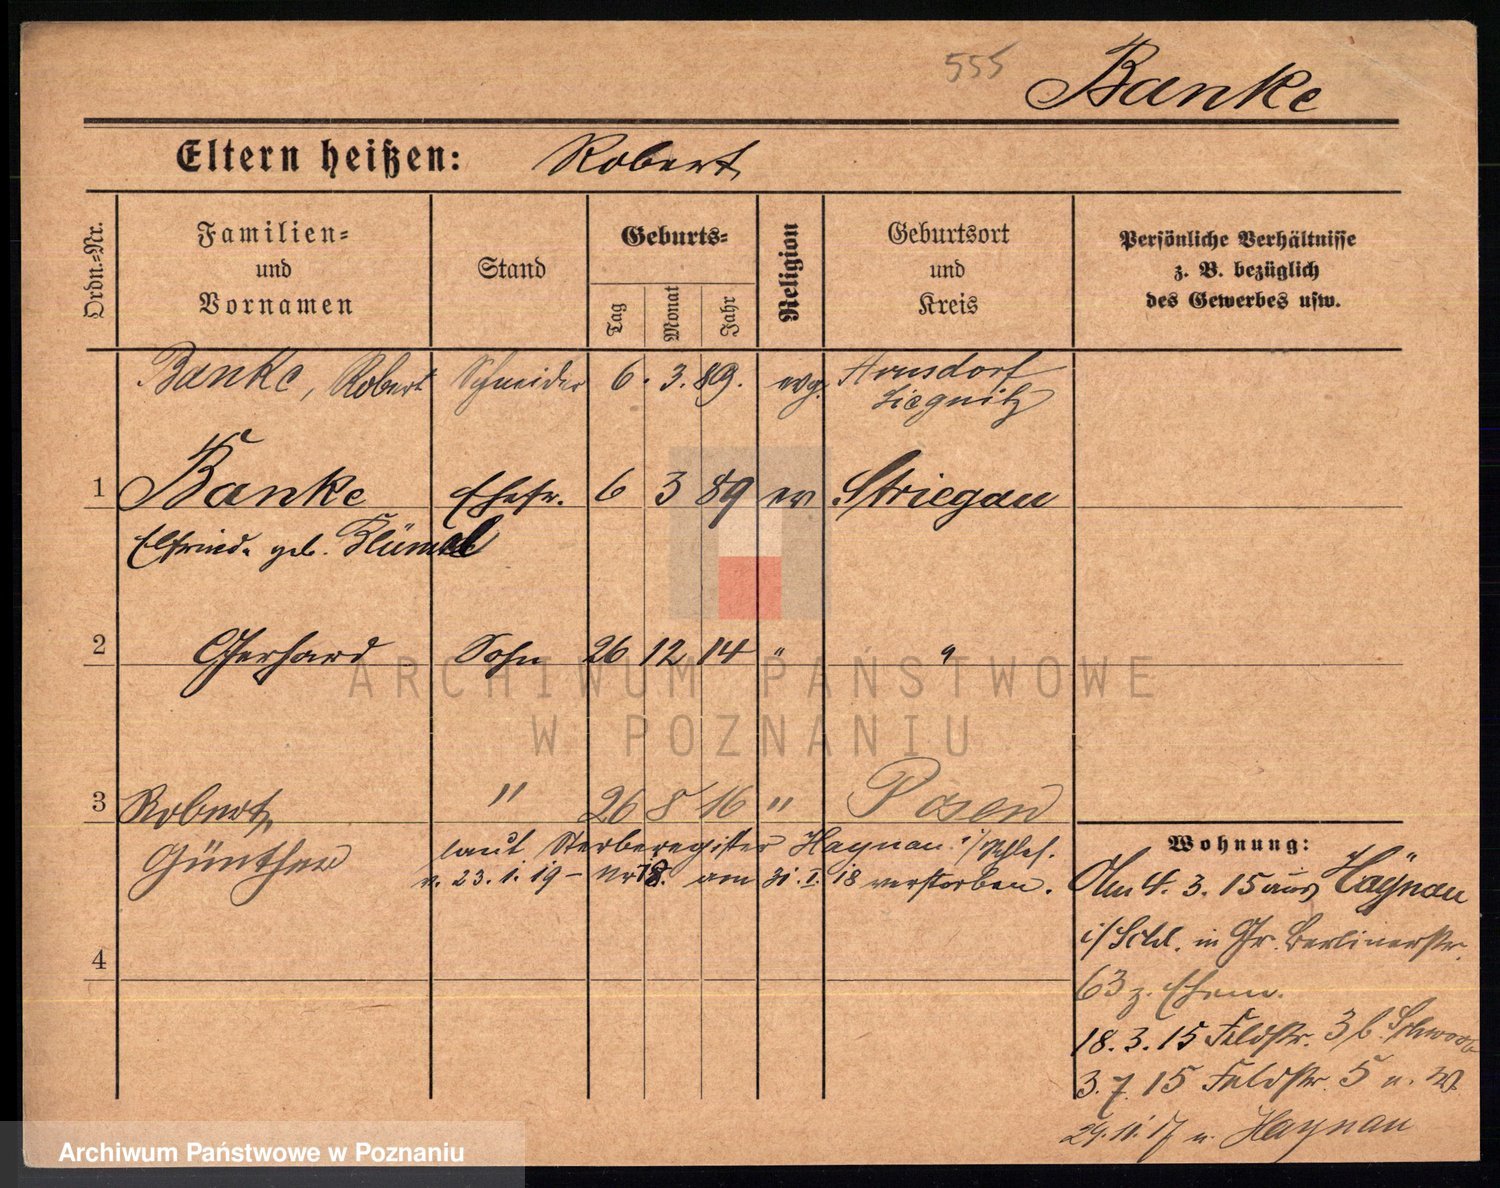 555 Banke
Eltern heißen: Robert
Ordn.-Nr.
Familien-
und
Vornamen
Stand
Geburts-
Tag
Monat
Jahr
Religion
Geburtsort
und
Kreis
Persönliche Verhältnisse
z. B. bezüglich
des Gewerbes usw.
Banke, Robert Schneider 6. 3. 89. evg. Arnsdorf
Liegnitz
1 Banke Ehefr. 6 3 89 ev Striegau
Elfriede geb.
2 Gerhard Sohn 26 12 14 " "
3 Robert, " 26 8 16 " Posen
Günther
laut Sterberegister Haynau i/Schles.
v. 23. 1. 19 - Nr 18. am 31. I. 18 verstorben.
4
Wohnung:
4. 3. 15 aus Haynau
i/Schl. in Gr. Berlinerstr.
63 z. Ehem.
18. 3. 15 Feldstr. 3 b.
3. 7. 15 Feldstr. 5 u. W.
29. 11. 17 n. Haynau
ARCHIWUM PAŃSTWOWE
W POZNANIU
Archiwum Państwowe w Poznaniu